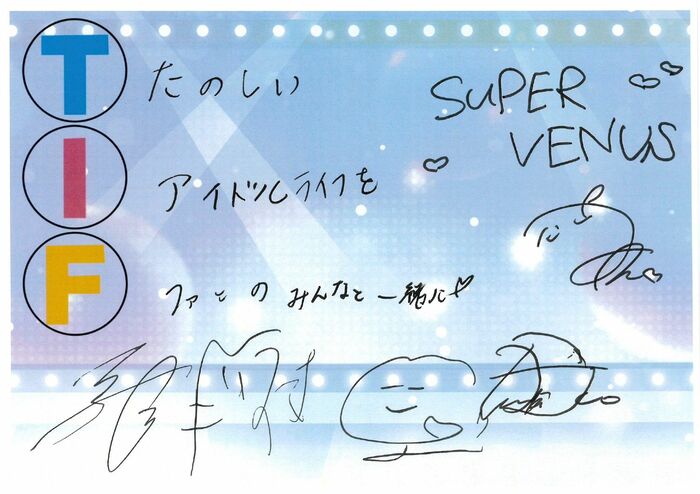 T たのしい
I アイドルライフを
F ファンのみんなと一緒に
SUPER
VENUS